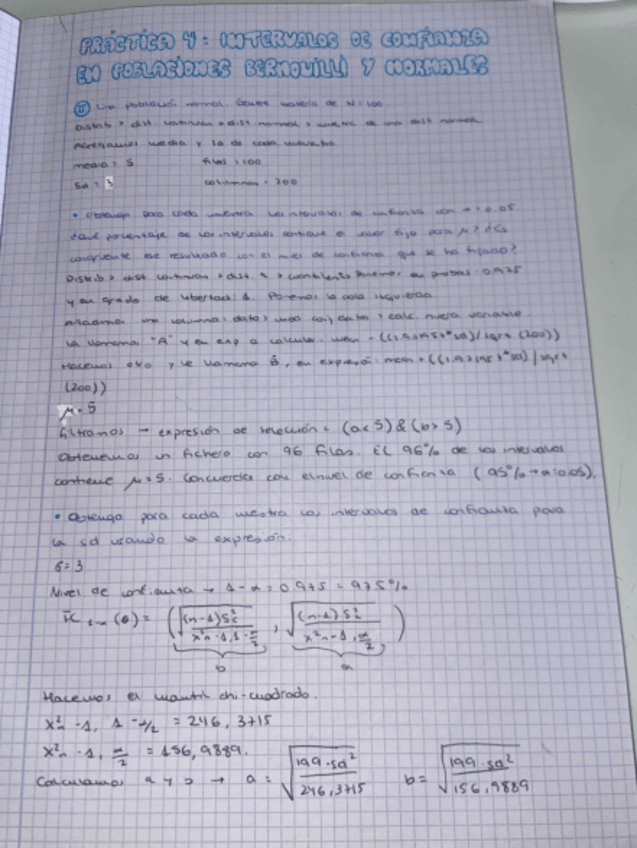 PRÁCTICA 4: INTERVALOS DE CONFIANZA
EN POBLACIONES BERNOUILLI Y NORMALES
Una población normal. Genere muestra de N=100
Distrib > dist. continuas > dist normal > muestra de una dist normal
media y sd de cada muestra
media = 5 filas = 100
sd = 3 columnas = 200
• Obtenga para cada muestra los intervalos de confianza con α = 0.05
¿qué porcentaje de los intervalos contiene el valor fijo para μ? ¿Es
congruente ese resultado con el nivel de confianza que se ha fijado?
Distrib > dist continuas > dist. t > cuantiles en probas: 0.975
y en grado de libertad: Ponemos la cola izquierda
Añadimos una columna: datos > modi conj datos > calc. nueva variable
la llamamos "A" y en exp a calcular: mean - ((1.971957*sd)/sqrt(200))
Hacemos otro y le llamamos B, en expresión: mean + ((1.971957*sd)/sqrt
(200))
μ = 5
filtramos → expresión de selección = (a<5)&(b>5)
Obtenemos un fichero con 96 filas. El 96% de los intervalos
contiene μ=5. Concuerda con el nivel de confianza (95% → α=0.05).
• Obtenga para cada muestra los intervalos de confianza para
la sd usando la expresión:
σ=3
Nivel de confianza → 1-α = 0.975 = 97.5%
IC 1-α (θ) = (√((n-1)S²c / X²n-1, 1-α/2), √((n-1)S²c / X²n-1, α/2))
b a
Hacemos el cuantil chi-cuadrado.
X²n-1, 1-α/2 = 246,3715
X²n-1, α/2 = 156,9889.
Calculamos a y b → a = √(199·sd² / 246,3715) b = √(199·sd² / 156,9889)